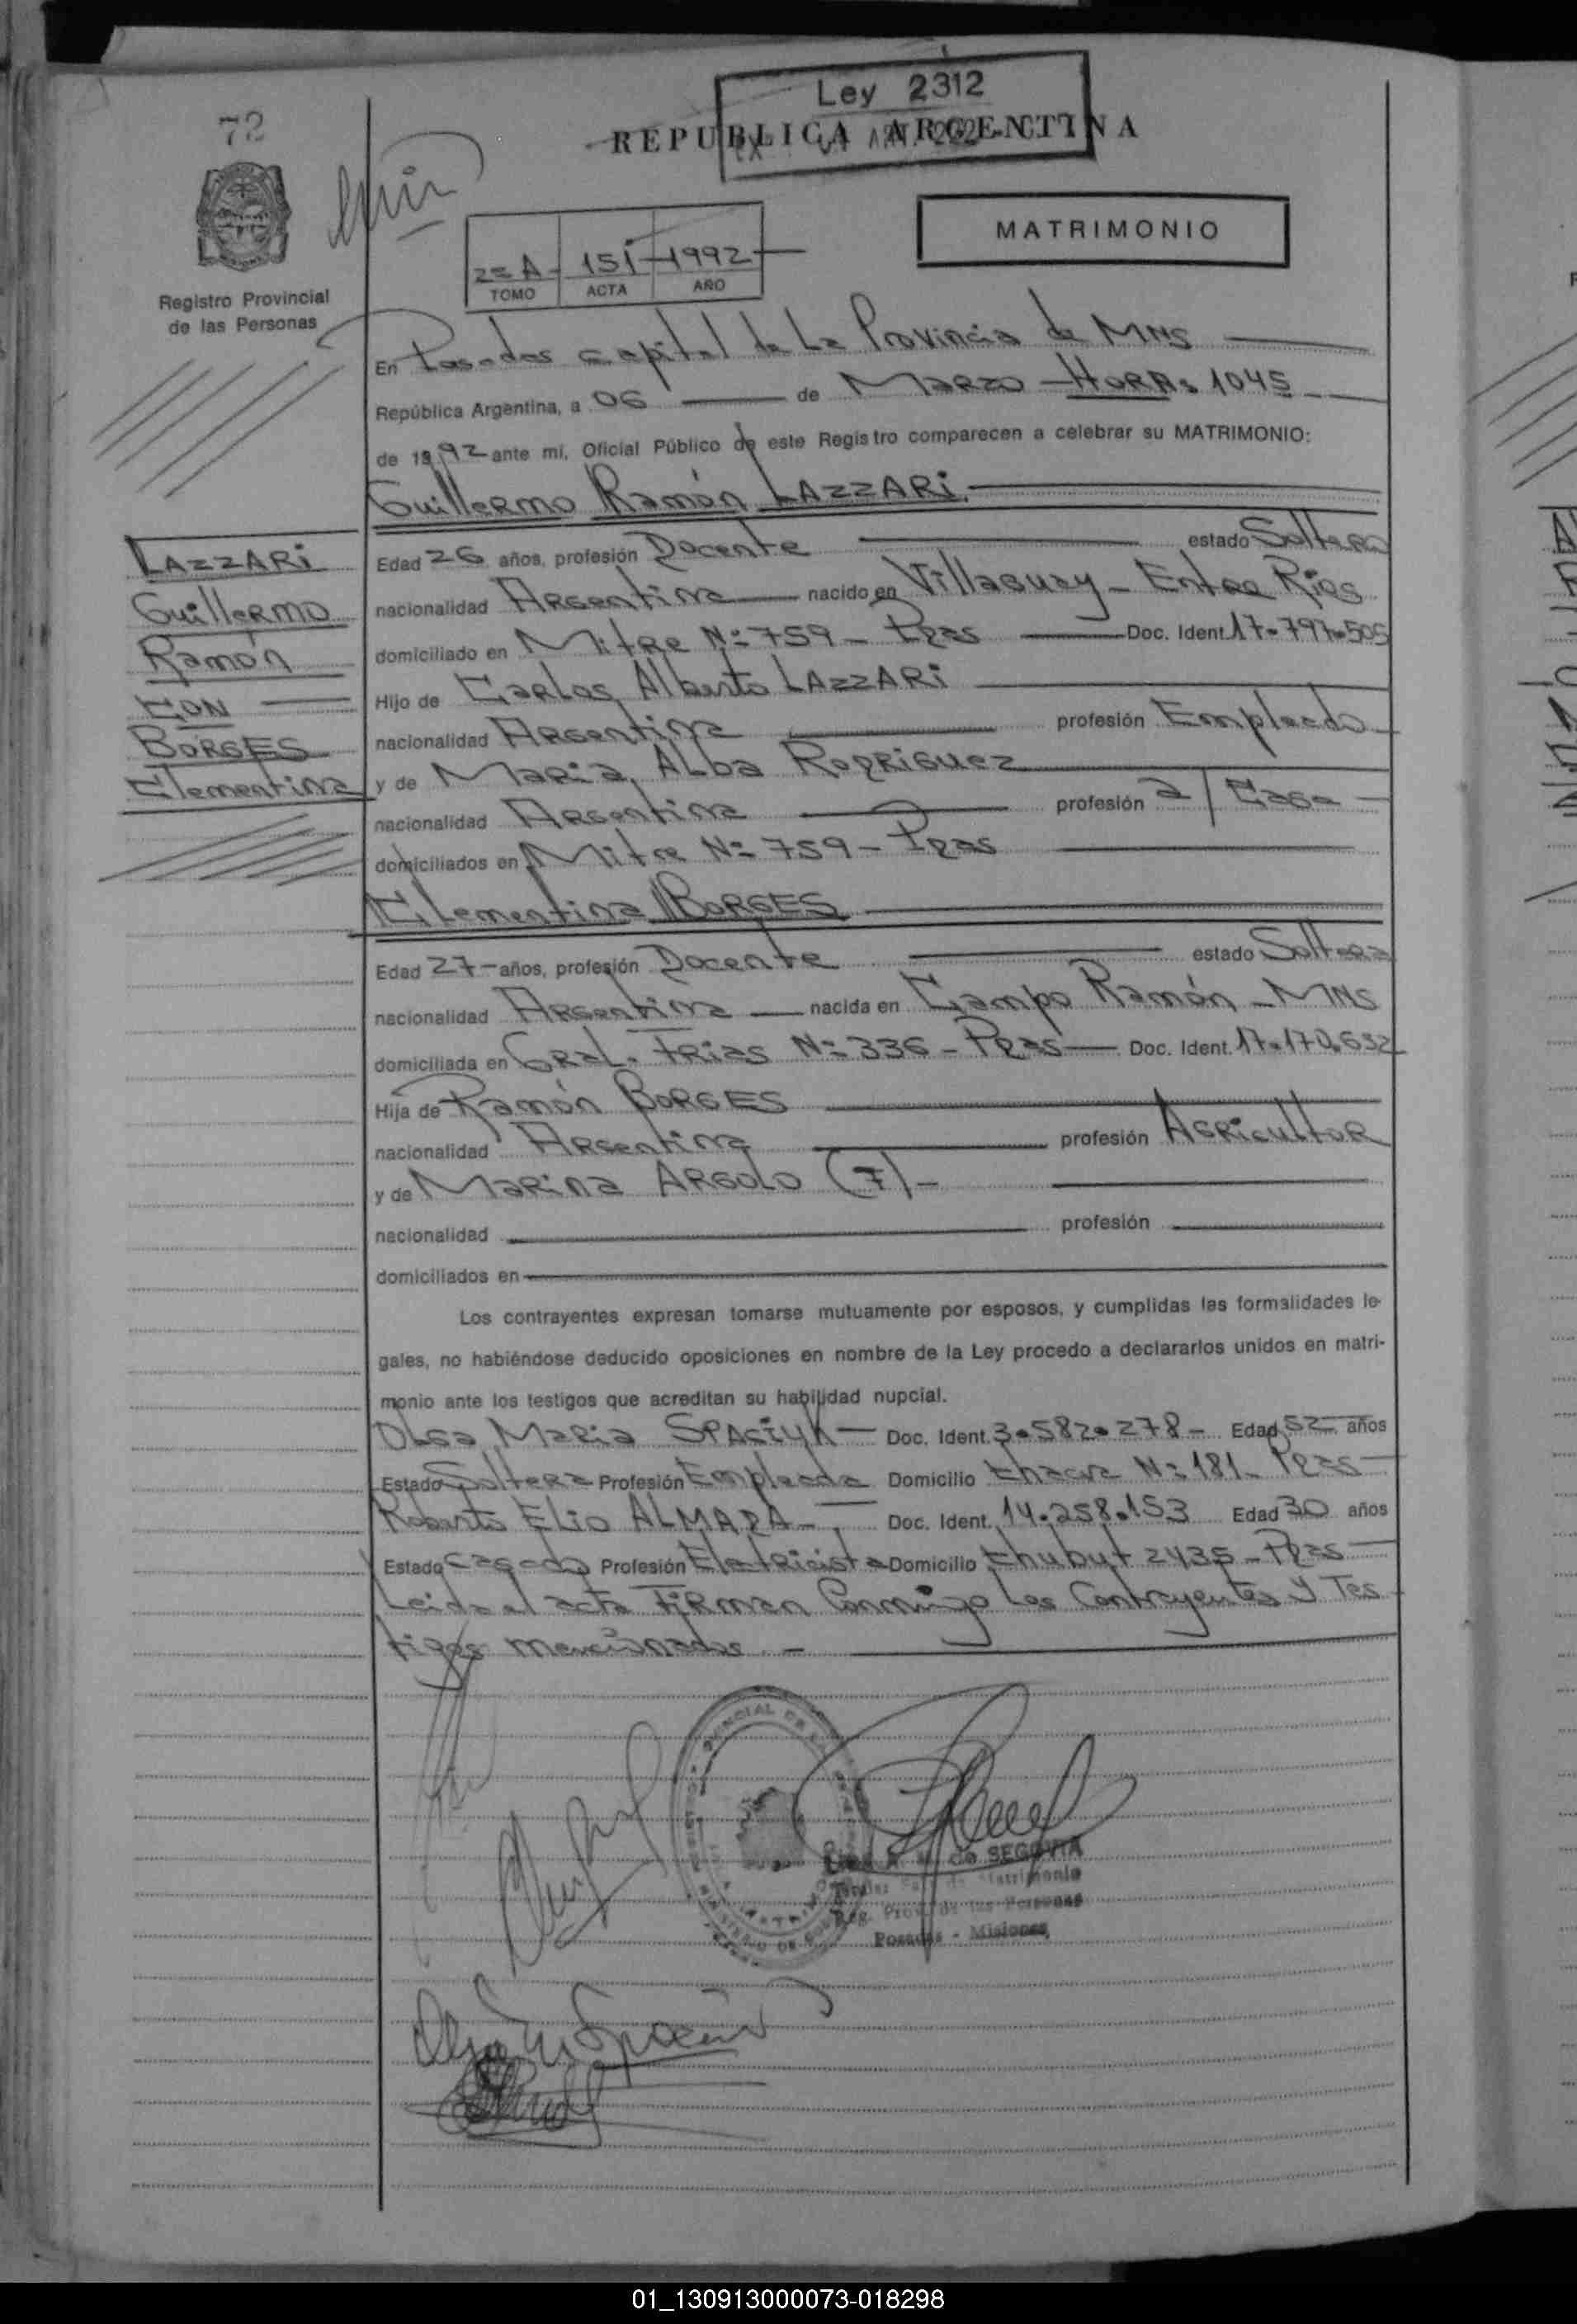 72
Ley 2312
REPUBLICA ARGENTINA
MATRIMONIO
2= A - 151 - 1992
TOMO ACTA AÑO
Registro Provincial
de las Personas
En Posadas capital de La Provincia de MNS
República Argentina, a 06 de Marzo - HORA: 1045
de 1992 ante mí, Oficial Público de este Registro comparecen a celebrar su MATRIMONIO:
Guillermo Ramón LAZZARI.
LAZZARI
Guillermo
Ramón
CON
BORGES
Clementina
Edad 26 años, profesión Docente estado Soltero
nacionalidad Argentina nacido en Villaguay - Entre Rios
domiciliado en Mitre N= 759 - Pdas Doc. Ident. 17.797.505
Hijo de Carlos Alberto LAZZARI
nacionalidad Argentina profesión Empleado
y de Maria Alba Rodriguez
nacionalidad Argentina profesión a/ Casa
domiciliados en Mitre N= 759 - Pdas
Clementina BORGES
Edad 27 - años, profesión Docente estado Soltera
nacionalidad Argentina nacida en Campo Ramón - MNS
domiciliada en Gral. Frias N= 336 - Pdas Doc. Ident. 17.170.632
Hija de Ramón BORGES
nacionalidad Argentina profesión Agricultor
y de Marina ARGOLO (7) -
nacionalidad profesión
domiciliados en
Los contrayentes expresan tomarse mutuamente por esposos, y cumplidas las formalidades le-
gales, no habiéndose deducido oposiciones en nombre de la Ley procedo a declararlos unidos en matri-
monio ante los testigos que acreditan su habilidad nupcial.
Olga Maria SPACIUK - Doc. Ident. 3.582.278 - Edad 52 años
Estado Soltera Profesión Empleada Domicilio Chacra N= 181 - Pdas
Roberto Elio ALMADA - Doc. Ident. 14.258.153 Edad 30 años
Estado Casado Profesión Eletricista Domicilio Chubut 2435 - Pdas
Leida el acta Firman Conmigo Los Contrayentes Y Tes
tigos mencionados -
de SEGOVIA
Matrimonio
Reg. Prov. de las Personas
Posadas - Misiones
01_130913000073-018298